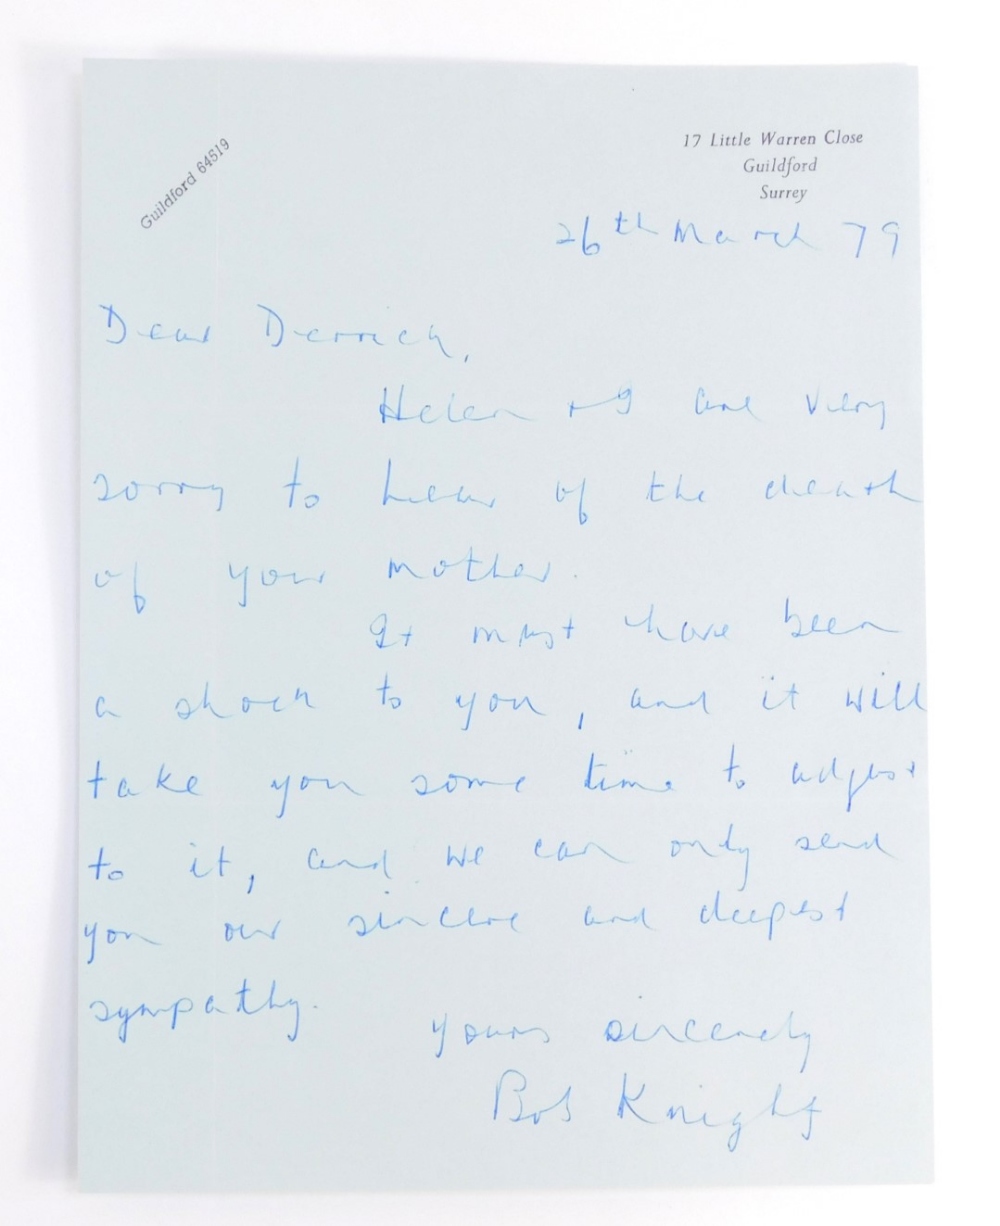 Guildford 64519
17 Little Warren Close
Guildford
Surrey
26th March 79
Dear Derrick,
Helen + I are very
sorry to hear of the death
of your mother.
It must have been
a shock to you, and it will
take you some time to adjust
to it, and we can only send
you our sincere and deepest
sympathy.
Yours sincerely
Bob Knight